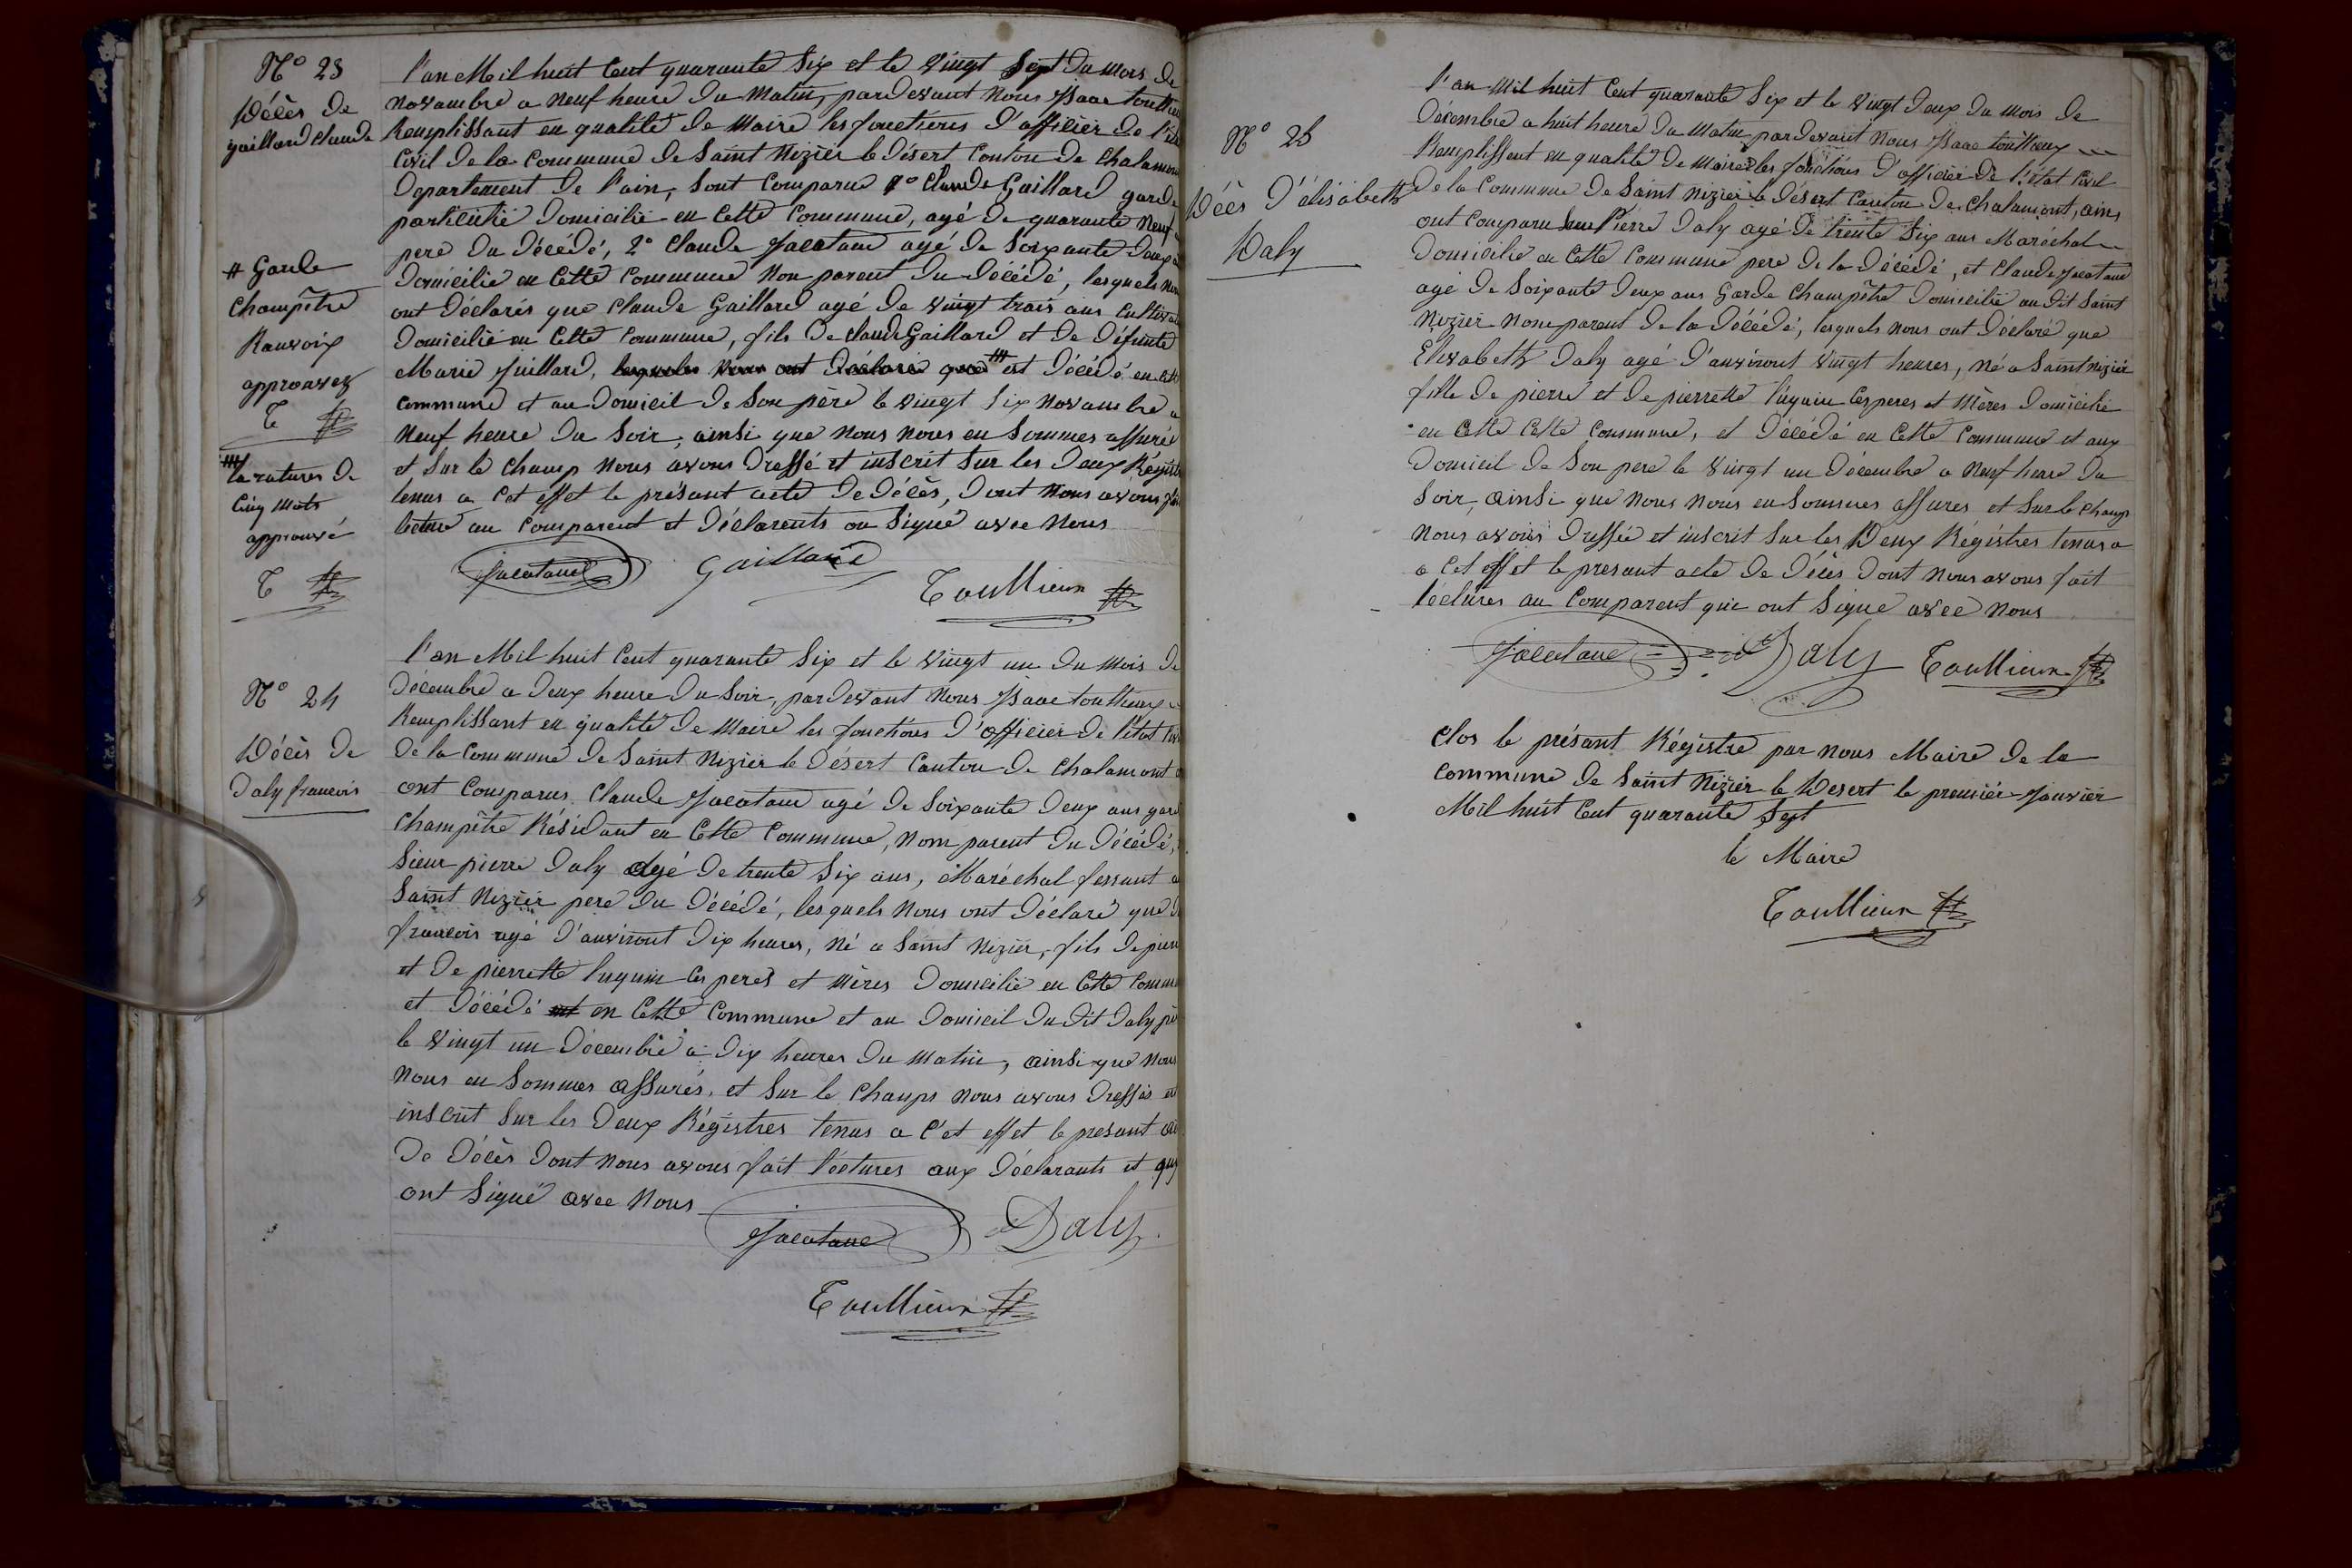 N° 23
Décès de
gaillard claude
l'an Mil huit Cent quarante Six et le Vingt Sept du Mois de
Novambre a Neuf heure du Matin, pardevant Nous Isaac
Remplissant en qualité de Maire les fonctions d'officier de
Civil de la Commune de Saint Nizier le désert Conton de
Departement de l'ain, Sont Comparue 1° Claude Gaillard garde
particulié Domicilié en Cette Commune, agé de quarante Neuf
pere du décédé, 2° Claude Jacotand agé de Soixante deux
domicilié en Cette Commune Non parent du décédé, lesquels
ont déclarés que Claude Gaillard agé de Vingt trois ans
Domicilié en Cette Commune, fils de Claude Gaillard et de défunte
Marie Juillard, lesqueles Nous ont déclaré que est décédé en
Commune et au Domicil de Son père le Vingt Six Novambre a
Neuf heure du Soir, ainsi que Nous nous en Sommes assurés
et Sur le Champ Nous avons dressé et inscrit Sur les deux
tenus a Cet effet le présant acte de décès, dont Nous avons
lecture au Comparent et déclarents on Signé avec Nous
# Garde
Champêtre
Ranvoix
approuvez
T
la ratures de
Cinq Mots
approuvé
T
Jacotand Gaillard
Toullieux
N° 24
Décès de
Daly francois
l'an Mil huit Cent quarante Six et le Vingt un du mois de
Décembre a deux heure du Soir, pardevant Nous Isaac toullieux
Remplissant en qualité de Maire les fonctions d'officier de l'état
de la Commune de Saint Nizier le désert Canton de Chalamont
ont Comparus Claude Jacotand agé de Soixante deux ans
Champêtre Résidant en Cette Commune, Nom parent du décédé,
Sieur pierre Daly Agé de trente Six ans, Maréchal ferrant a
Saint Nizier pere du décédé, lesquels Nous ont déclaré que
francois agé d'anviront dix heures, né a Saint Nizier, fils de
et de pierrette luquin les peres et mères Domicilié en Cette
et décédé en Cette Commune et au domicil du dit Daly
le Vingt un décembre a dix heures du Matin, ainsi que Nous
Nous en Sommes assurés, et Sur le Champs Nous avons dressés et
inscrit Sur les deux Régistres tenus a C'et effet le présant
De décès dont Nous avons fait léctures aux déclarants et
ont Signé avec Nous
Jacotand Daly
Toullieux
N° 25
Décès d'élisabeth
Daly
l'an Mil huit Cent quarante Six et le Vingt deux du Mois de
Décembre a huit heure du Matin pardevant Nous Isaac toullieux
Ramplissent en qualité de Maire les fonctions d'officier de l'état Civil
de la Commune de Saint Nizier le désert Canton de Chalamont, ain,
ont Comparu Pierre Daly agé de trente Six ans Maréchal
Domicilié en Cette Commune pere de la décédé, et Claude Jacotand
agé de Soixante deux ans Garde Champêtre domicilié au dit Saint
Nizier Nom parent de la décédé, lesquels Nous ont déclaré que
Elisabeth Daly agé d'anviront Vingt heures, né a Saint nizier
fille de pierre et de pierrette luquin les peres et Mères domicilié
en Cette Cette Commune, et décédé en Cette Commune et aux
Domicil de Son pere le Vingt un décembre a Neuf heure du
Soir, ainsi que Nous Nous en Sommes assures et Sur le Champs
Nous avons dressée et inscrit Sur les Deux Régistres tenus a
a Cet effet le presant acte de décès dont Nous avons fait
léctures au Comparent qui ont Signé avec Nous
Jacotand Daly Toullieux
Clos le présant Régistre par Nous Maire de la
Commune de Saint Nizier le Desert le premier Janvier
Mil huit Cent quarante Sept
le Maire
Toullieux